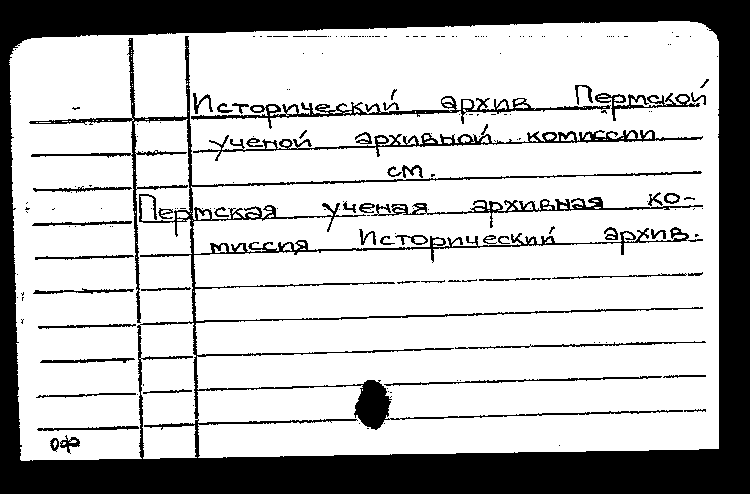 Исторический архив Пермской
ученой архивной комиссии
см.
Пермская ученая архивная ко-
миссия Исторический архив.
ОФ